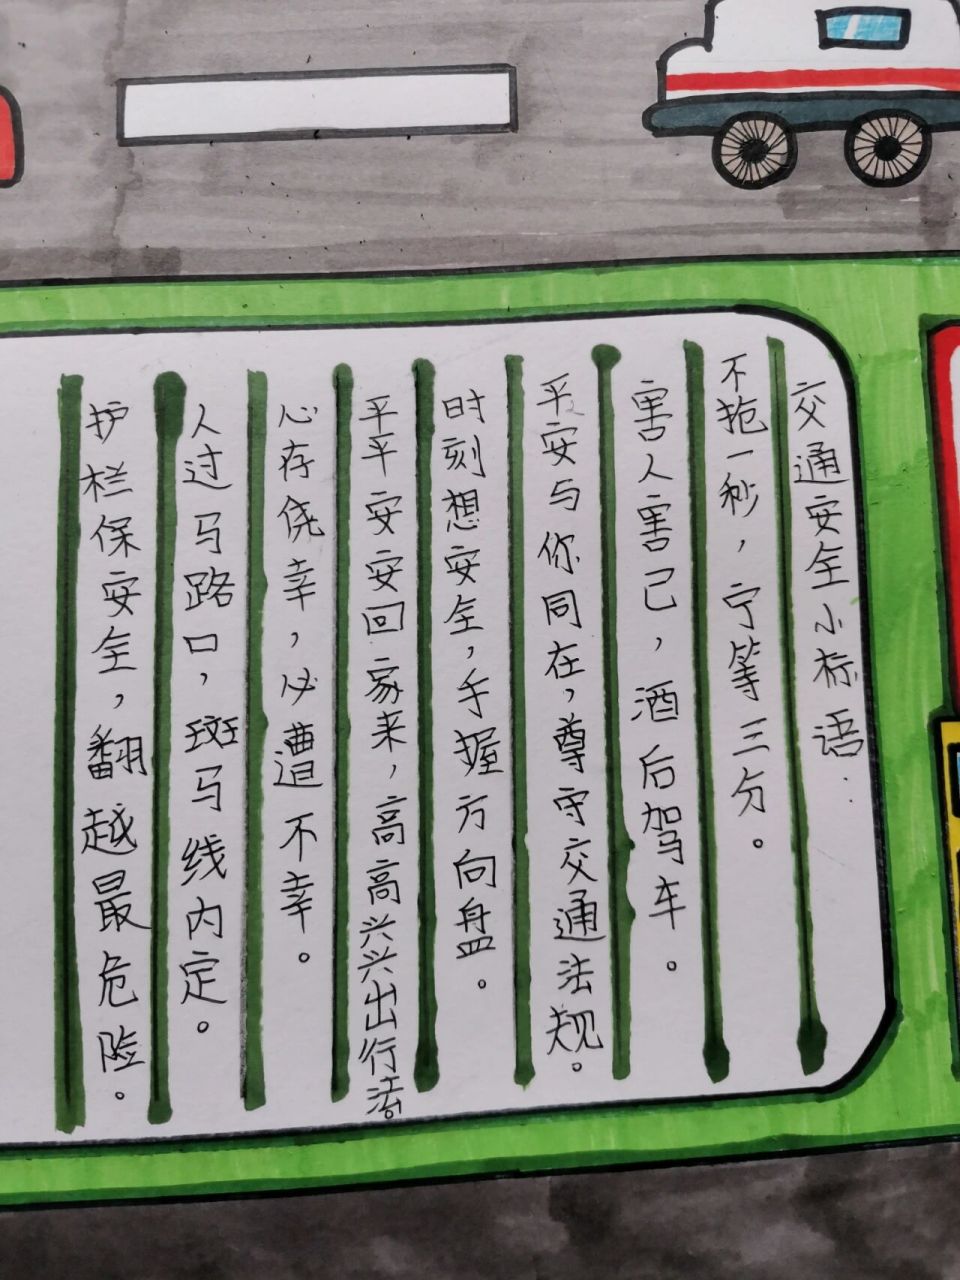 交通安全小标语.
不抢一秒，宁等三分。
害人害己，酒后驾车。
平安与你同在，尊守交通法规。
时刻想安全，手握方向盘。
平平安安回家来，高高兴兴出行法。
心存侥幸，必遭不幸。
人过马路口，斑马线内定。
护栏保安全，翻越最危险。